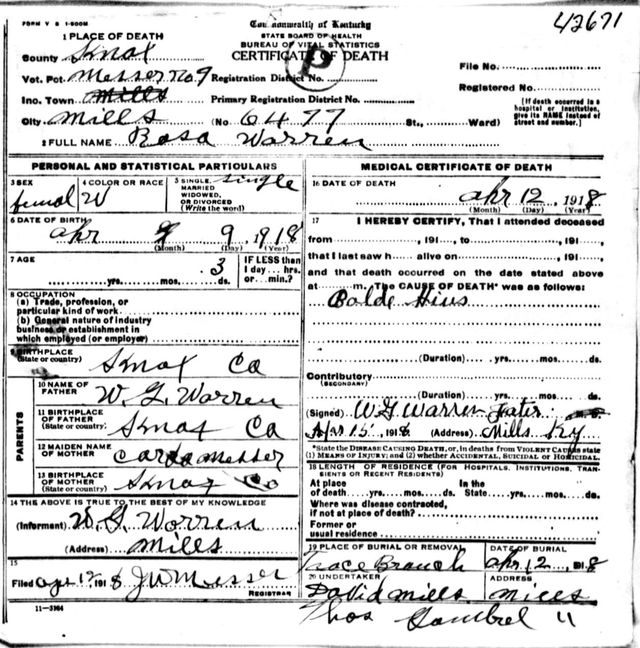 FORM V S 1-500M
Commonwealth of Kentucky
42671
STATE BOARD OF HEALTH
BUREAU OF VITAL STATISTICS
CERTIFICATE OF DEATH
P
1 PLACE OF DEATH
County Knox
Vot. Pct. Messer No. 9
Registration District No.
File No.
Inc. Town Mills
Primary Registration District No.
Registered No.
City Mills
(No 6477 St., Ward)
[If death occurred in a hospital or institution, give its NAME instead of street and number.]
2 FULL NAME Rosa Warren
PERSONAL AND STATISTICAL PARTICULARS
3 SEX femal
4 COLOR OR RACE W
5 SINGLE, MARRIED WIDOWED, OR DIVORCED (Write the word) Single
6 DATE OF BIRTH
Apr 9 1918
(Month) (Day) (Year)
7 AGE
yrs. mos. 3 ds.
IF LESS than 1 day hrs. or min.?
8 OCCUPATION
(a) Trade, profession, or particular kind of work
(b) General nature of industry business or establishment in which employed (or employer)
9 BIRTHPLACE
(State or country) Knox Co
PARENTS
10 NAME OF FATHER W. G. Warren
11 BIRTHPLACE OF FATHER (State or country) Knox Co
12 MAIDEN NAME OF MOTHER Messer
13 BIRTHPLACE OF MOTHER (State or country) Knox Co
14 THE ABOVE IS TRUE TO THE BEST OF MY KNOWLEDGE
(Informant) W. G. Warren
(Address) Mills
15
Filed 191 8 J W Messer
REGISTRAR
11-3184
MEDICAL CERTIFICATE OF DEATH
16 DATE OF DEATH
Apr 12, 1918
(Month) (Day) (Year)
17 I HEREBY CERTIFY, That I attended deceased
from , 191 , to , 191 ,
that I last saw h alive on , 191 ,
and that death occurred on the date stated above
at m. The CAUSE OF DEATH* was as follows:
Bolde Hius
(Duration) yrs. mos. ds.
Contributory
(SECONDARY)
(Duration) yrs. mos. ds.
(Signed) W G Warren
Apr 15 1918 (Address) Mills Ky
*State the DISEASE CAUSING DEATH, or, in deaths from VIOLENT CAUSES state (1) MEANS OF INJURY; and (2) whether ACCIDENTAL, SUICIDAL or HOMICIDAL.
18 LENGTH OF RESIDENCE (FOR HOSPITALS, INSTITUTIONS, TRANSIENTS OR RECENT RESIDENTS)
At place of death yrs. mos. ds. In the State yrs. mos. ds.
Where was disease contracted, if not at place of death?
Former or usual residence
19 PLACE OF BURIAL OR REMOVAL Trace Branch
DATE OF BURIAL Apr 12, 1918
20 UNDERTAKER David Mills
ADDRESS Mills
Thos Gambrel "